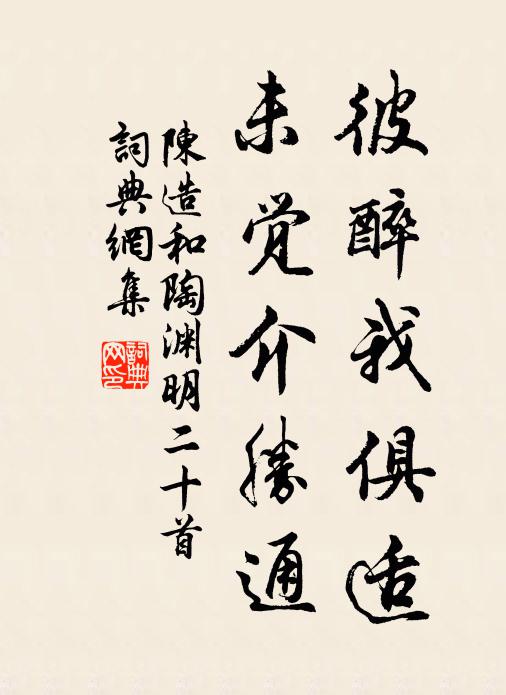 彼醉我俱适
未覚介勝通
陳造和陶渊明二十首
詞典網集
詞典网印